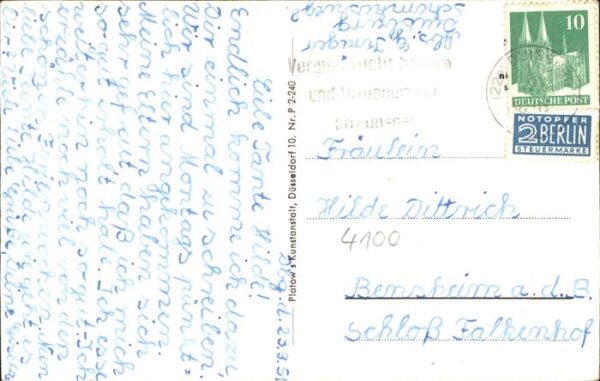 Abs. G. Krüger
Duisburg
10
DEUTSCHE POST
NOTOPFER
2 BERLIN
STEUERMARKE
Vergiß nicht Straße
und Hausnummer
anzugeben
Fräulein
Hilde Dittrich
4100
Bensheim a.d.B.
Schloß Falkenhof
Platow's Kunstanstalt, Düsseldorf 10. Nr. P 2-240
d. 23.3.51
Liebe Tante Hilde!
Endlich komme ich dazu,
Dir einmal zu schreiben.
Wir sind Montag pünkt=
lich hier angekommen.
Meine Eltern haben sich
sehr gefreut, daß ich mich
so gut erholt habe. Ich esse
weiterhin noch so gut. Ich
erzähle noch viel von den
schönen